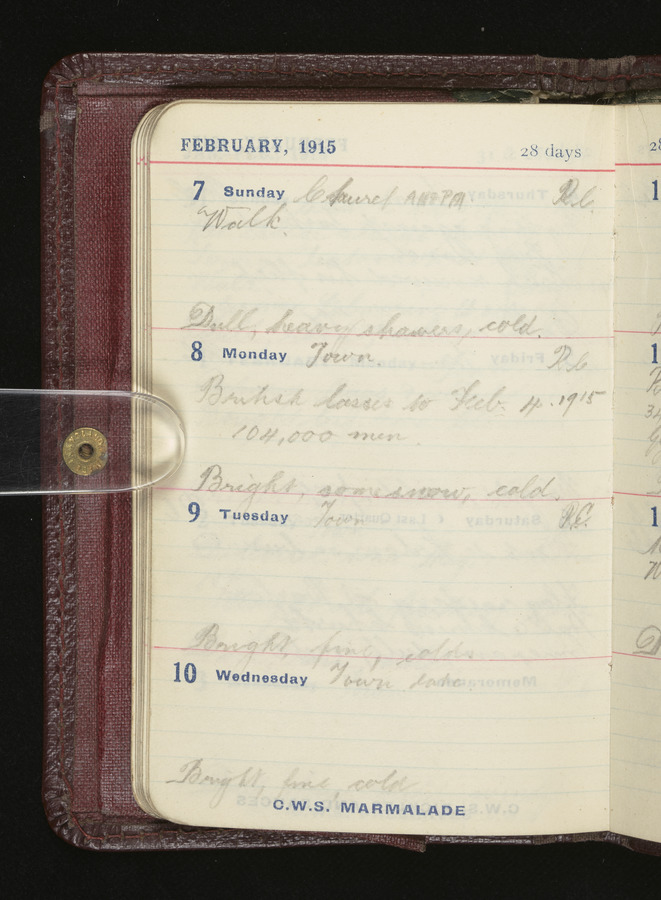 FEBRUARY, 1915 28 days
7 Sunday Church AM & PM R.C.
Walk.
Dull, heavy showers, cold.
8 Monday Town R.C.
British losses to Feb. 4. 1915
104,000 men.
Bright, some snow, cold.
9 Tuesday Town R.C.
Bright, fine, cold
10 Wednesday Town
Bright, fine, cold
C.W.S. MARMALADE